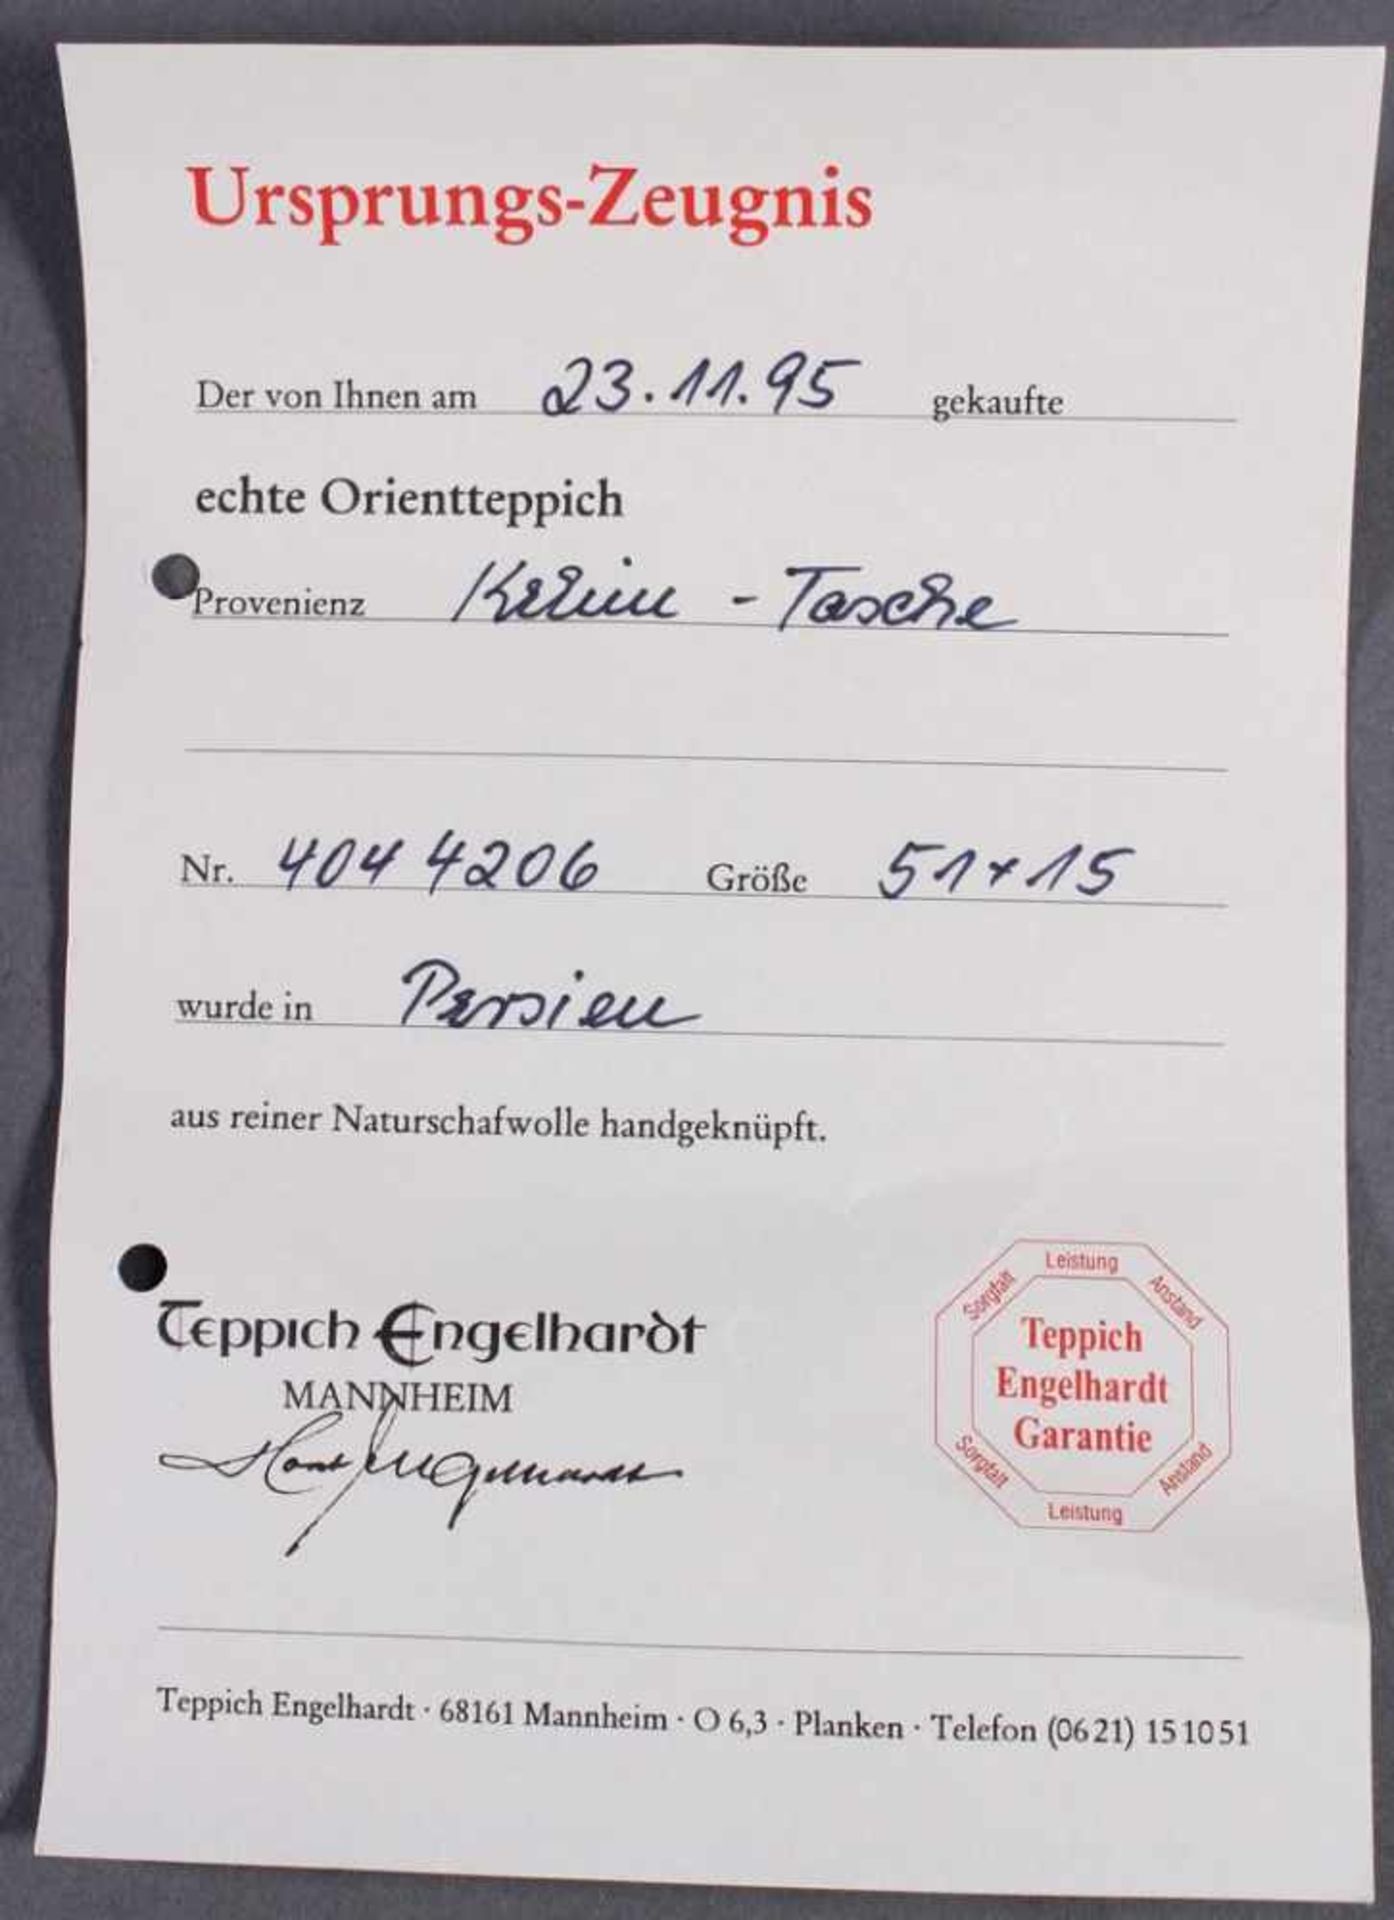 Ursprungs-Zeugnis
Der von Ihnen am 23.11.95 gekaufte
echte Orientteppich
Provenienz Kelim - Tasche
Nr. 404 4206 Größe 51 x 15
wurde in Persien
aus reiner Naturschafwolle handgeknüpft.
Teppich Engelhardt
MANNHEIM
Sorgfalt Leistung Anstand
Teppich
Engelhardt
Garantie
Sorgfalt Leistung Anstand
Teppich Engelhardt · 68161 Mannheim · O 6,3 · Planken · Telefon (06 21) 15 10 51